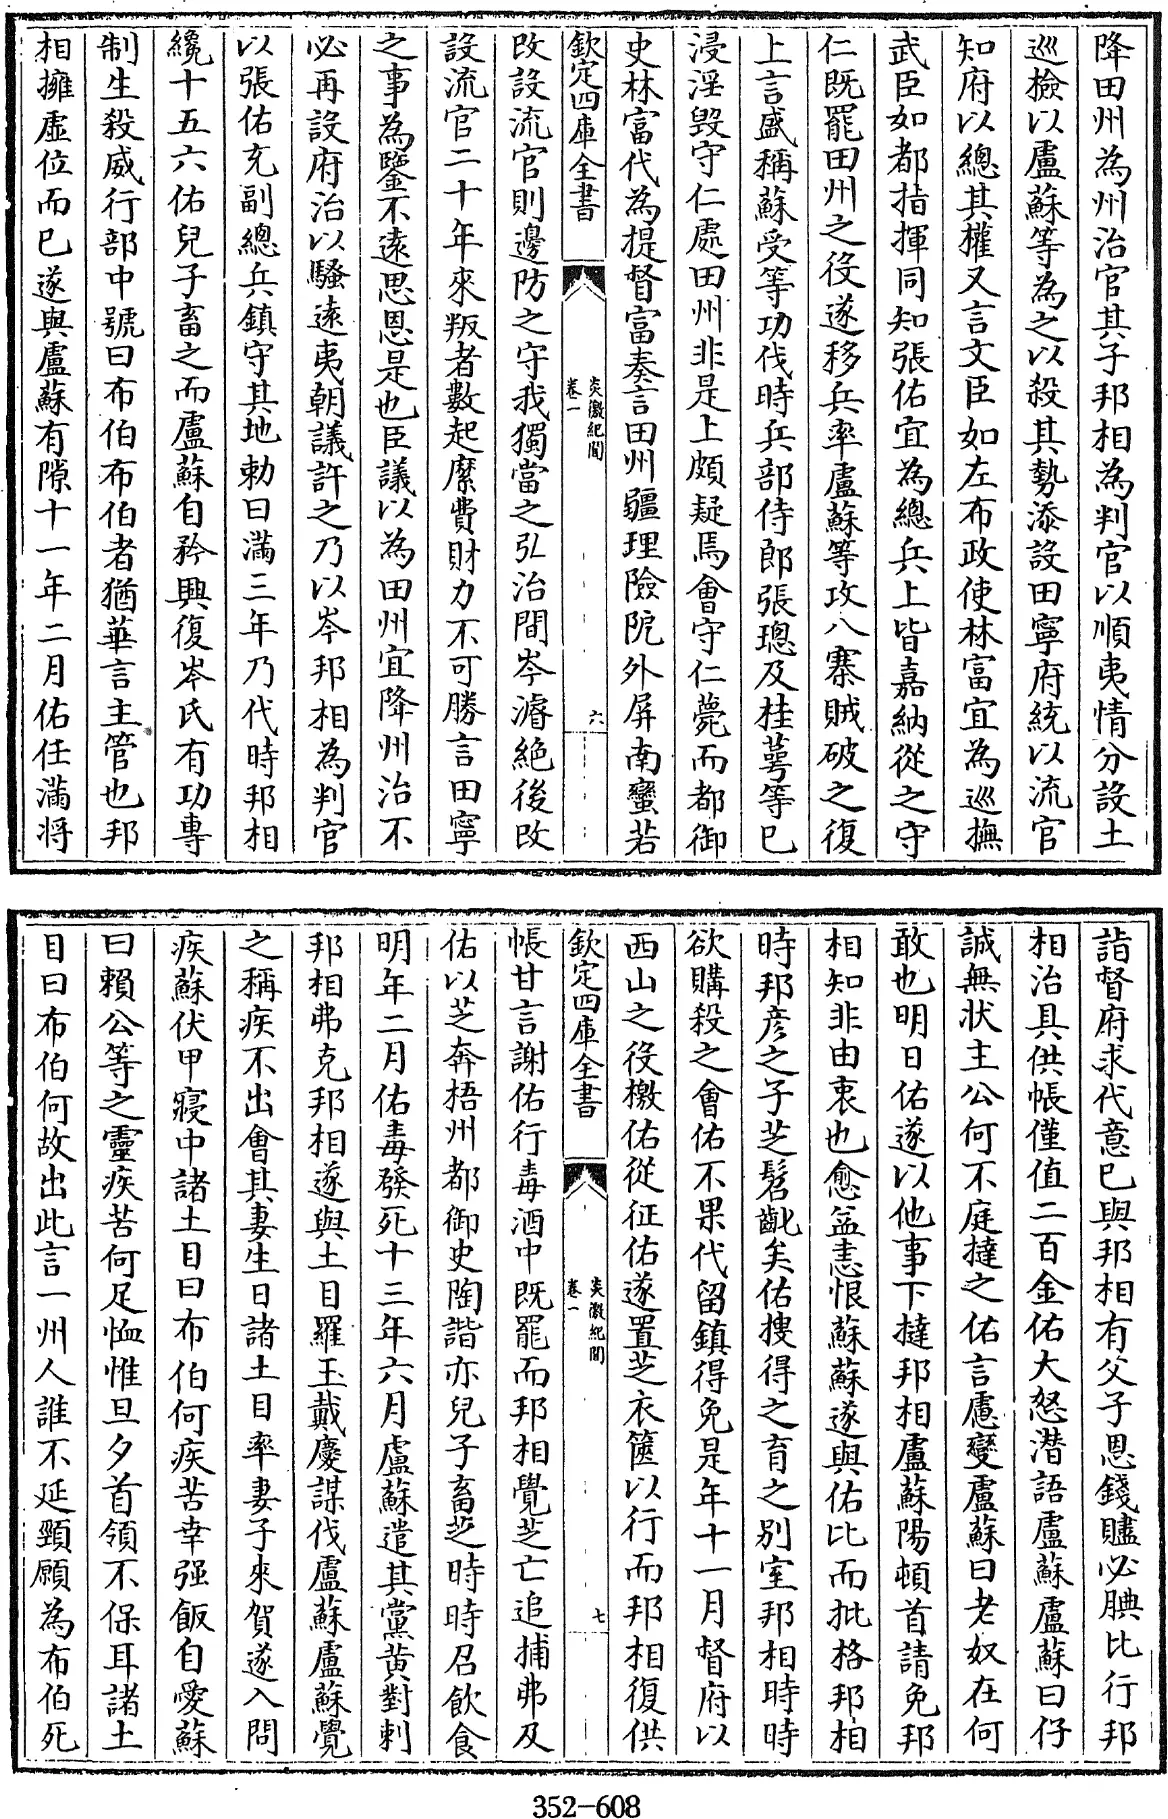 降田州為州治官其子邦相為判官以順夷情分設土
巡檢以盧蘇等為之以殺其勢添設田寧府統以流官
知府以總其權又言文臣如左布政使林富宜為巡撫
武臣如都指揮同知張佑宜為總兵上皆嘉納從之守
仁既罷田州之役遂移兵率盧蘇等攻八寨賊破之復
上言盛稱蘇受等功伐時兵部侍郎張璁及桂萼等已
浸淫毀守仁處田州非是上頗疑焉會守仁薨而都御
史林富代為提督富奏言田州疆理險阨外屏南蠻若
欽定四庫全書
炎徼紀聞
卷一
六
改設流官則邊防之守我獨當之弘治間岑濬絶後改
設流官二十年來叛者數起縻費財力不可勝言田寧
之事為鑒不遠思恩是也臣議以為田州宜降州治不
必再設府治以騷遠夷朝議許之乃以岑邦相為判官
以張佑充副總兵鎮守其地勅曰滿三年乃代時邦相
纔十五六佑兒子畜之而盧蘇自矜興復岑氏有功專
制生殺威行部中號曰布伯布伯者猶華言主管也邦
相擁虛位而已遂與盧蘇有隙十一年二月佑任滿將
詣督府求代意已與邦相有父子恩錢贐必腆比行邦
相治具供帳僅值二百金佑大怒潛語盧蘇盧蘇曰仔
誠無狀主公何不庭撻之佑言慮變盧蘇曰老奴在何
敢也明日佑遂以他事下撻邦相盧蘇陽頓首請免邦
相知非由衷也愈益恚恨蘇蘇遂與佑比而批格邦相
時邦彦之子芝髫齔矣佑搜得之育之别室邦相時時
欲購殺之會佑不果代留鎮得免是年十一月督府以
西山之役檄佑從征佑遂置芝衣篋以行而邦相復供
欽定四庫全書
炎徼紀聞
卷一
七
帳甘言謝佑行毒酒中既罷而邦相覺芝亡追捕弗及
佑以芝奔梧州都御史陶諧亦兒子畜芝時時召飲食
明年二月佑毒發死十三年六月盧蘇遣其黨黄對刺
邦相弗克邦相遂與土目羅玉戴慶謀伐盧蘇盧蘇覺
之稱疾不出會其妻生日諸土目率妻子來賀遂入問
疾蘇伏甲寢中諸土目曰布伯何疾苦幸强飯自愛蘇
曰賴公等之靈疾苦何足恤惟旦夕首領不保耳諸土
目曰布伯何故出此言一州人誰不延頸願為布伯死
352-608